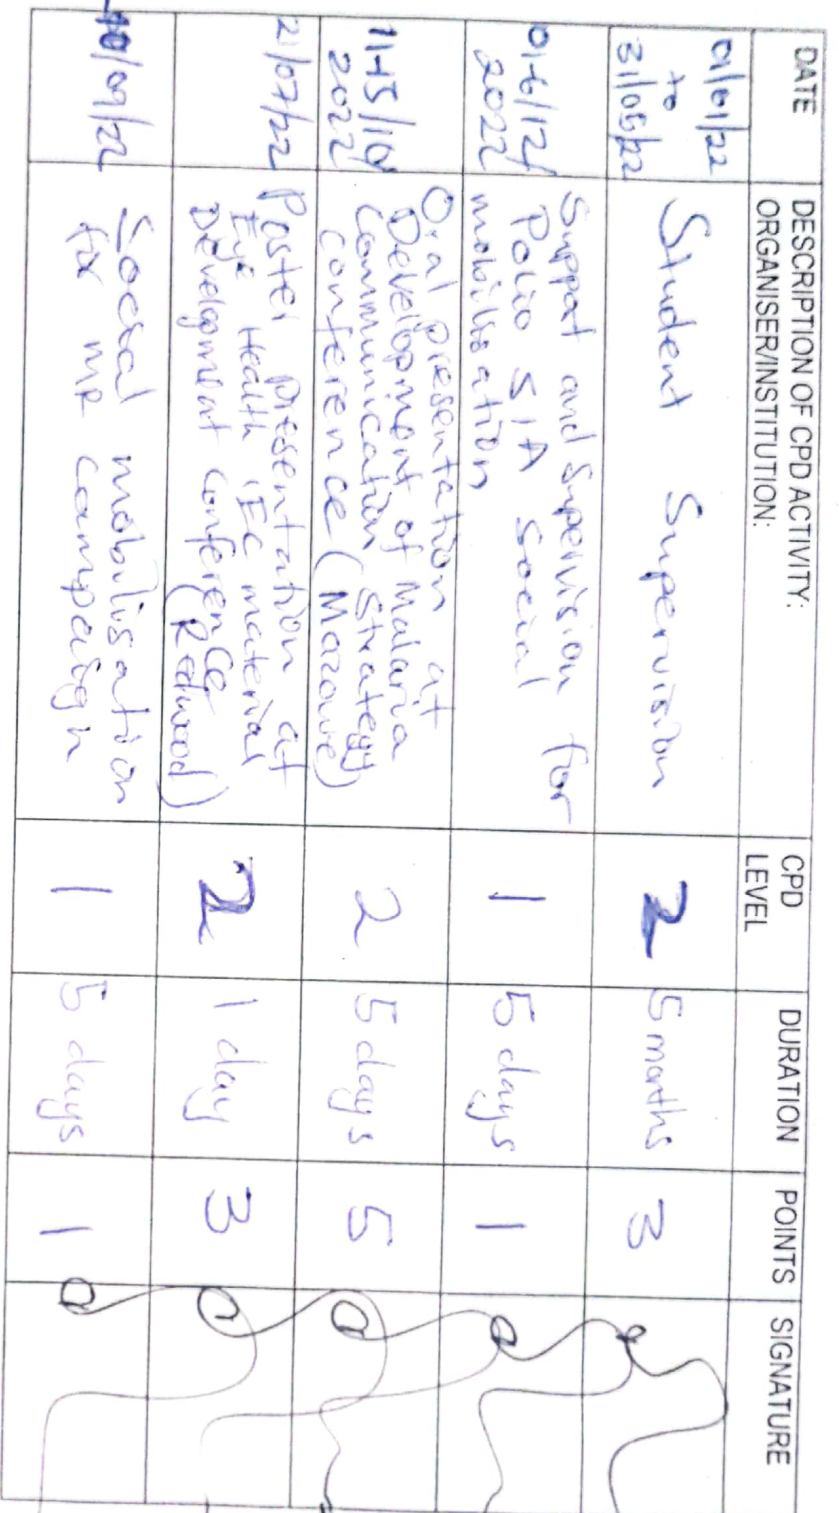 DATE
DESCRIPTION OF CPD ACTIVITY:
ORGANISER/INSTITUTION:
CPD
LEVEL
DURATION
POINTS
SIGNATURE
01/01/22
to
31/05/22
Student Supervision
2
5 months
3
01-6/12/
2022
Support and Supervision for
Polio SIA Social
mobilisation
1
5 days
1
11-15/10/
2022
Oral presentation at
Development of Malaria
Communication Strategy
conference (Mazowe)
2
5 days
5
21/07/22
Poster presentation at
Eye Health IEC material
Development Conference
(Redwood)
2
1 day
3
/09/22
Social mobilisation
for MR campaign
1
5 days
1